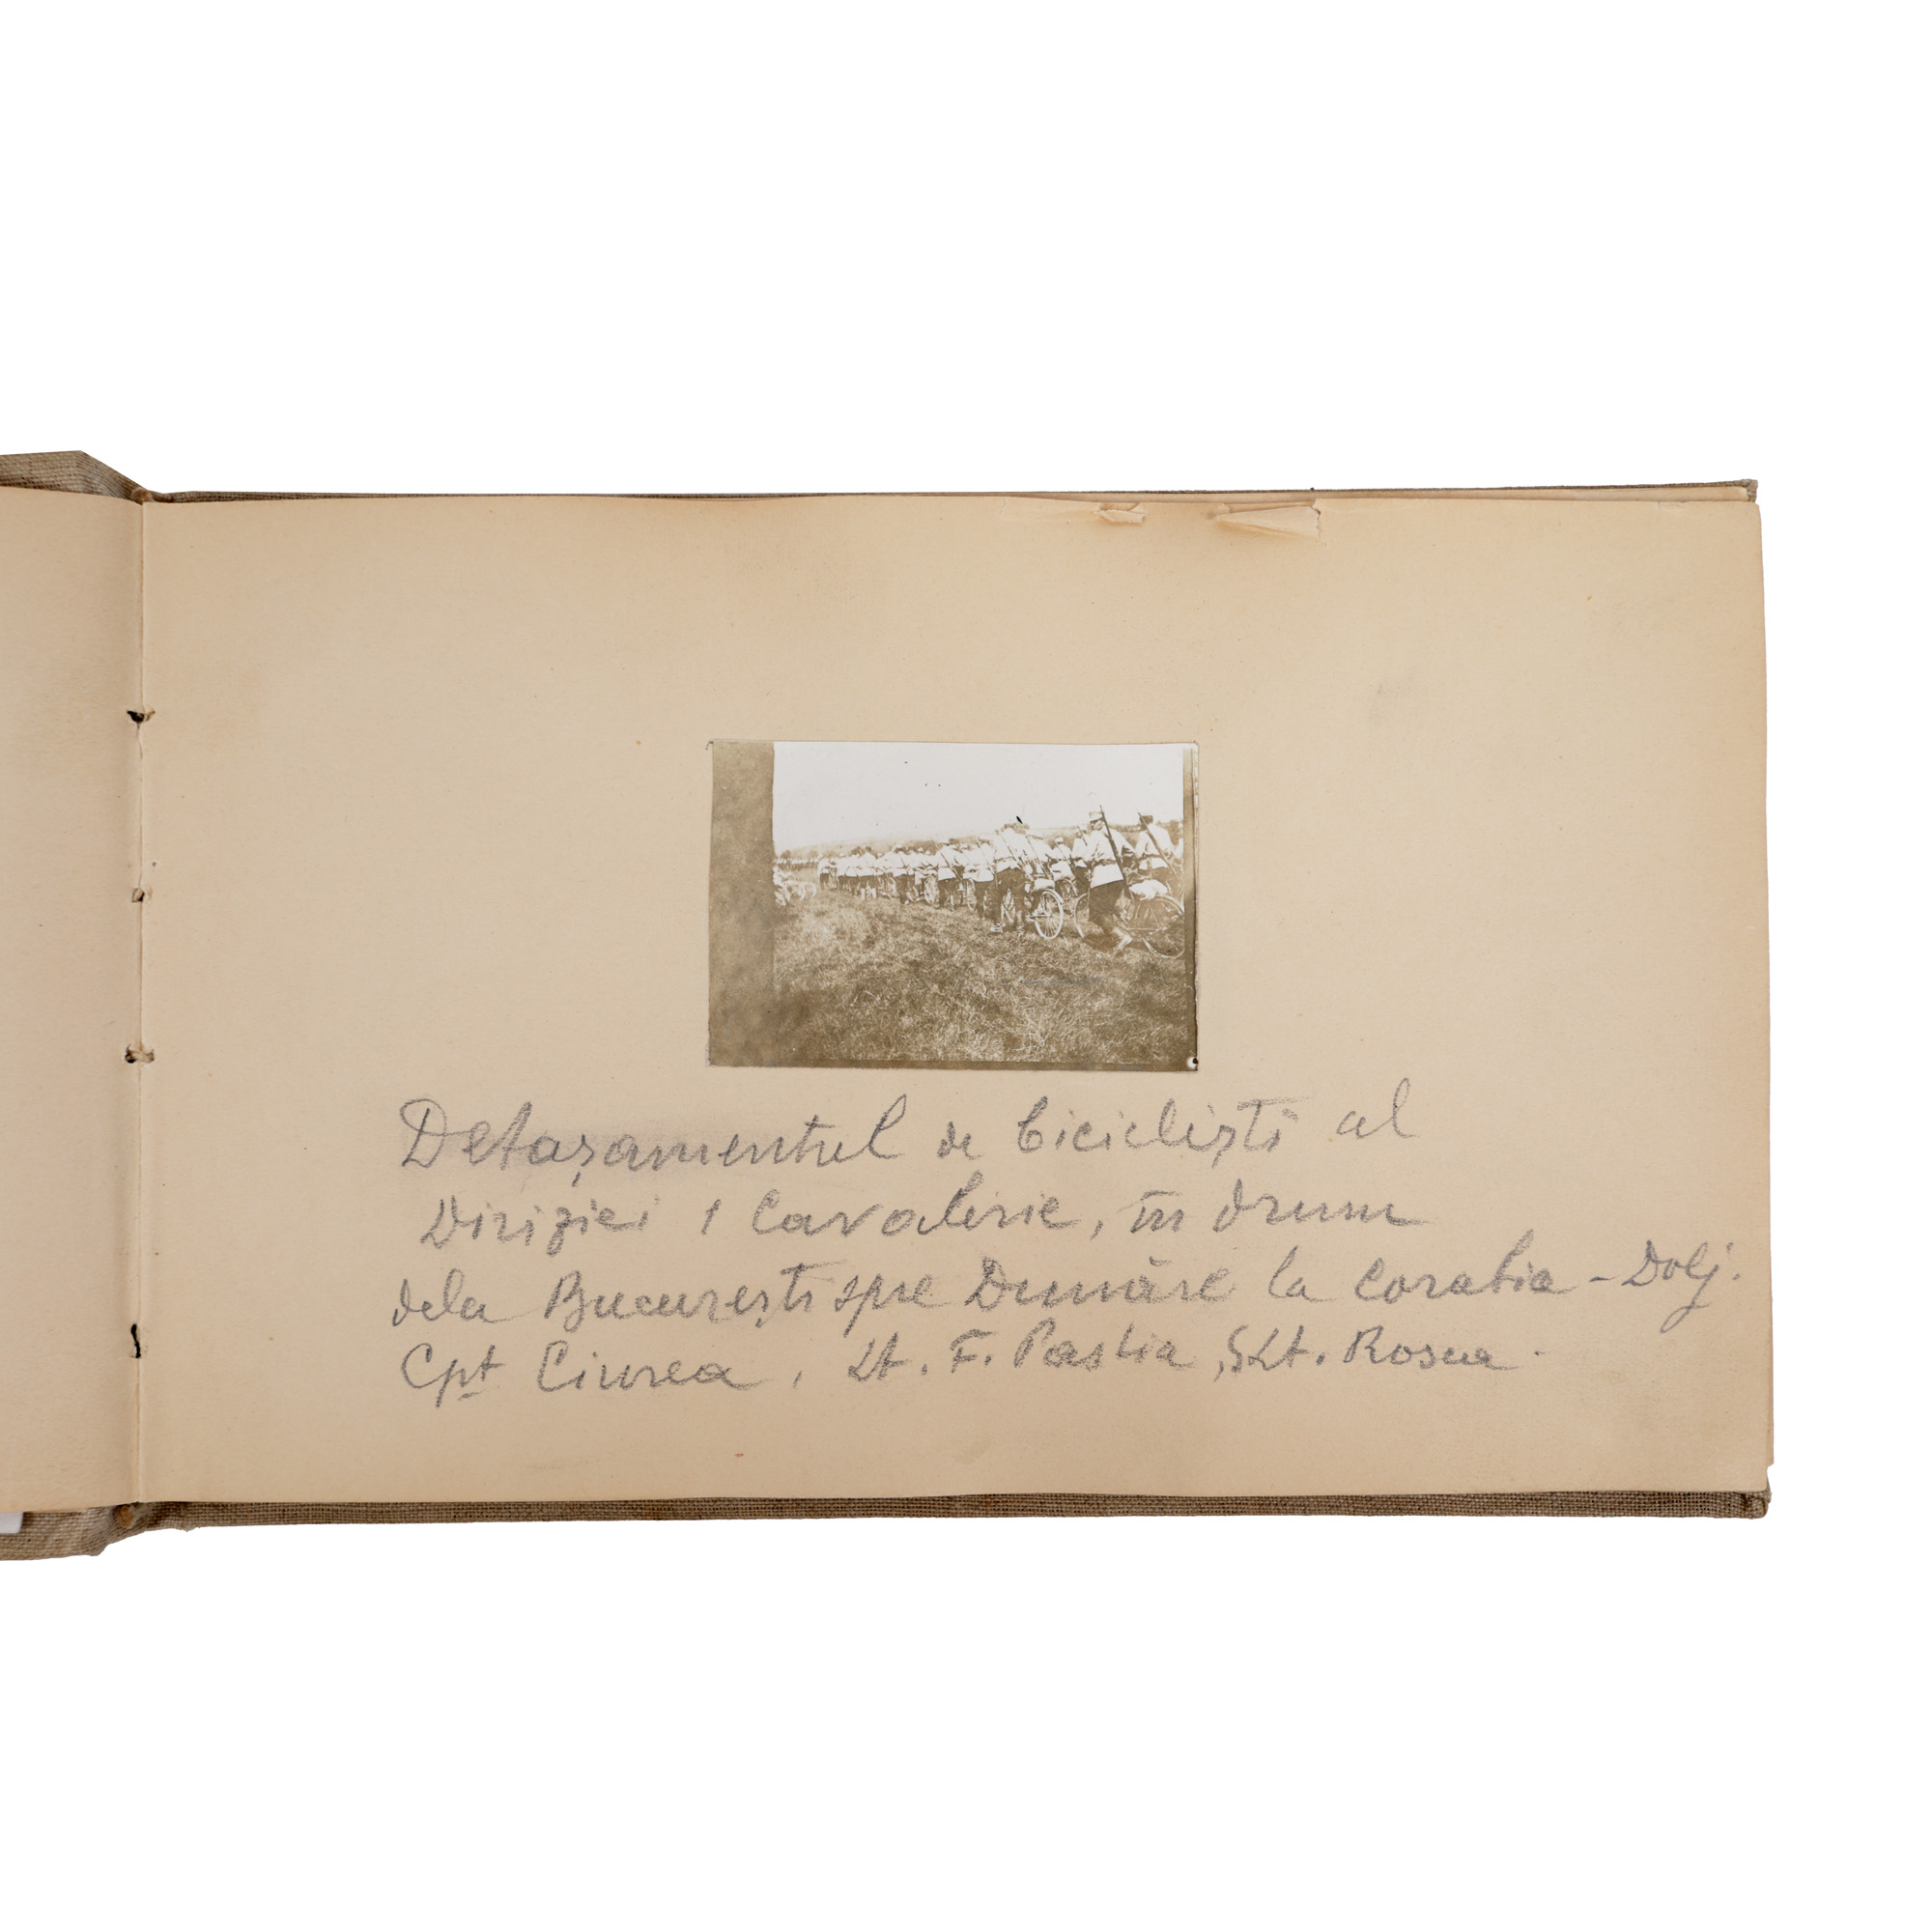 Detașamentul de bicicliști al
Diviziei 1 Cavalerie, în drum
dela București spre Dunăre la Corabia - Dolj.
Cpt Ciurea, Lt. F. Pastia, SLt. Rosca.